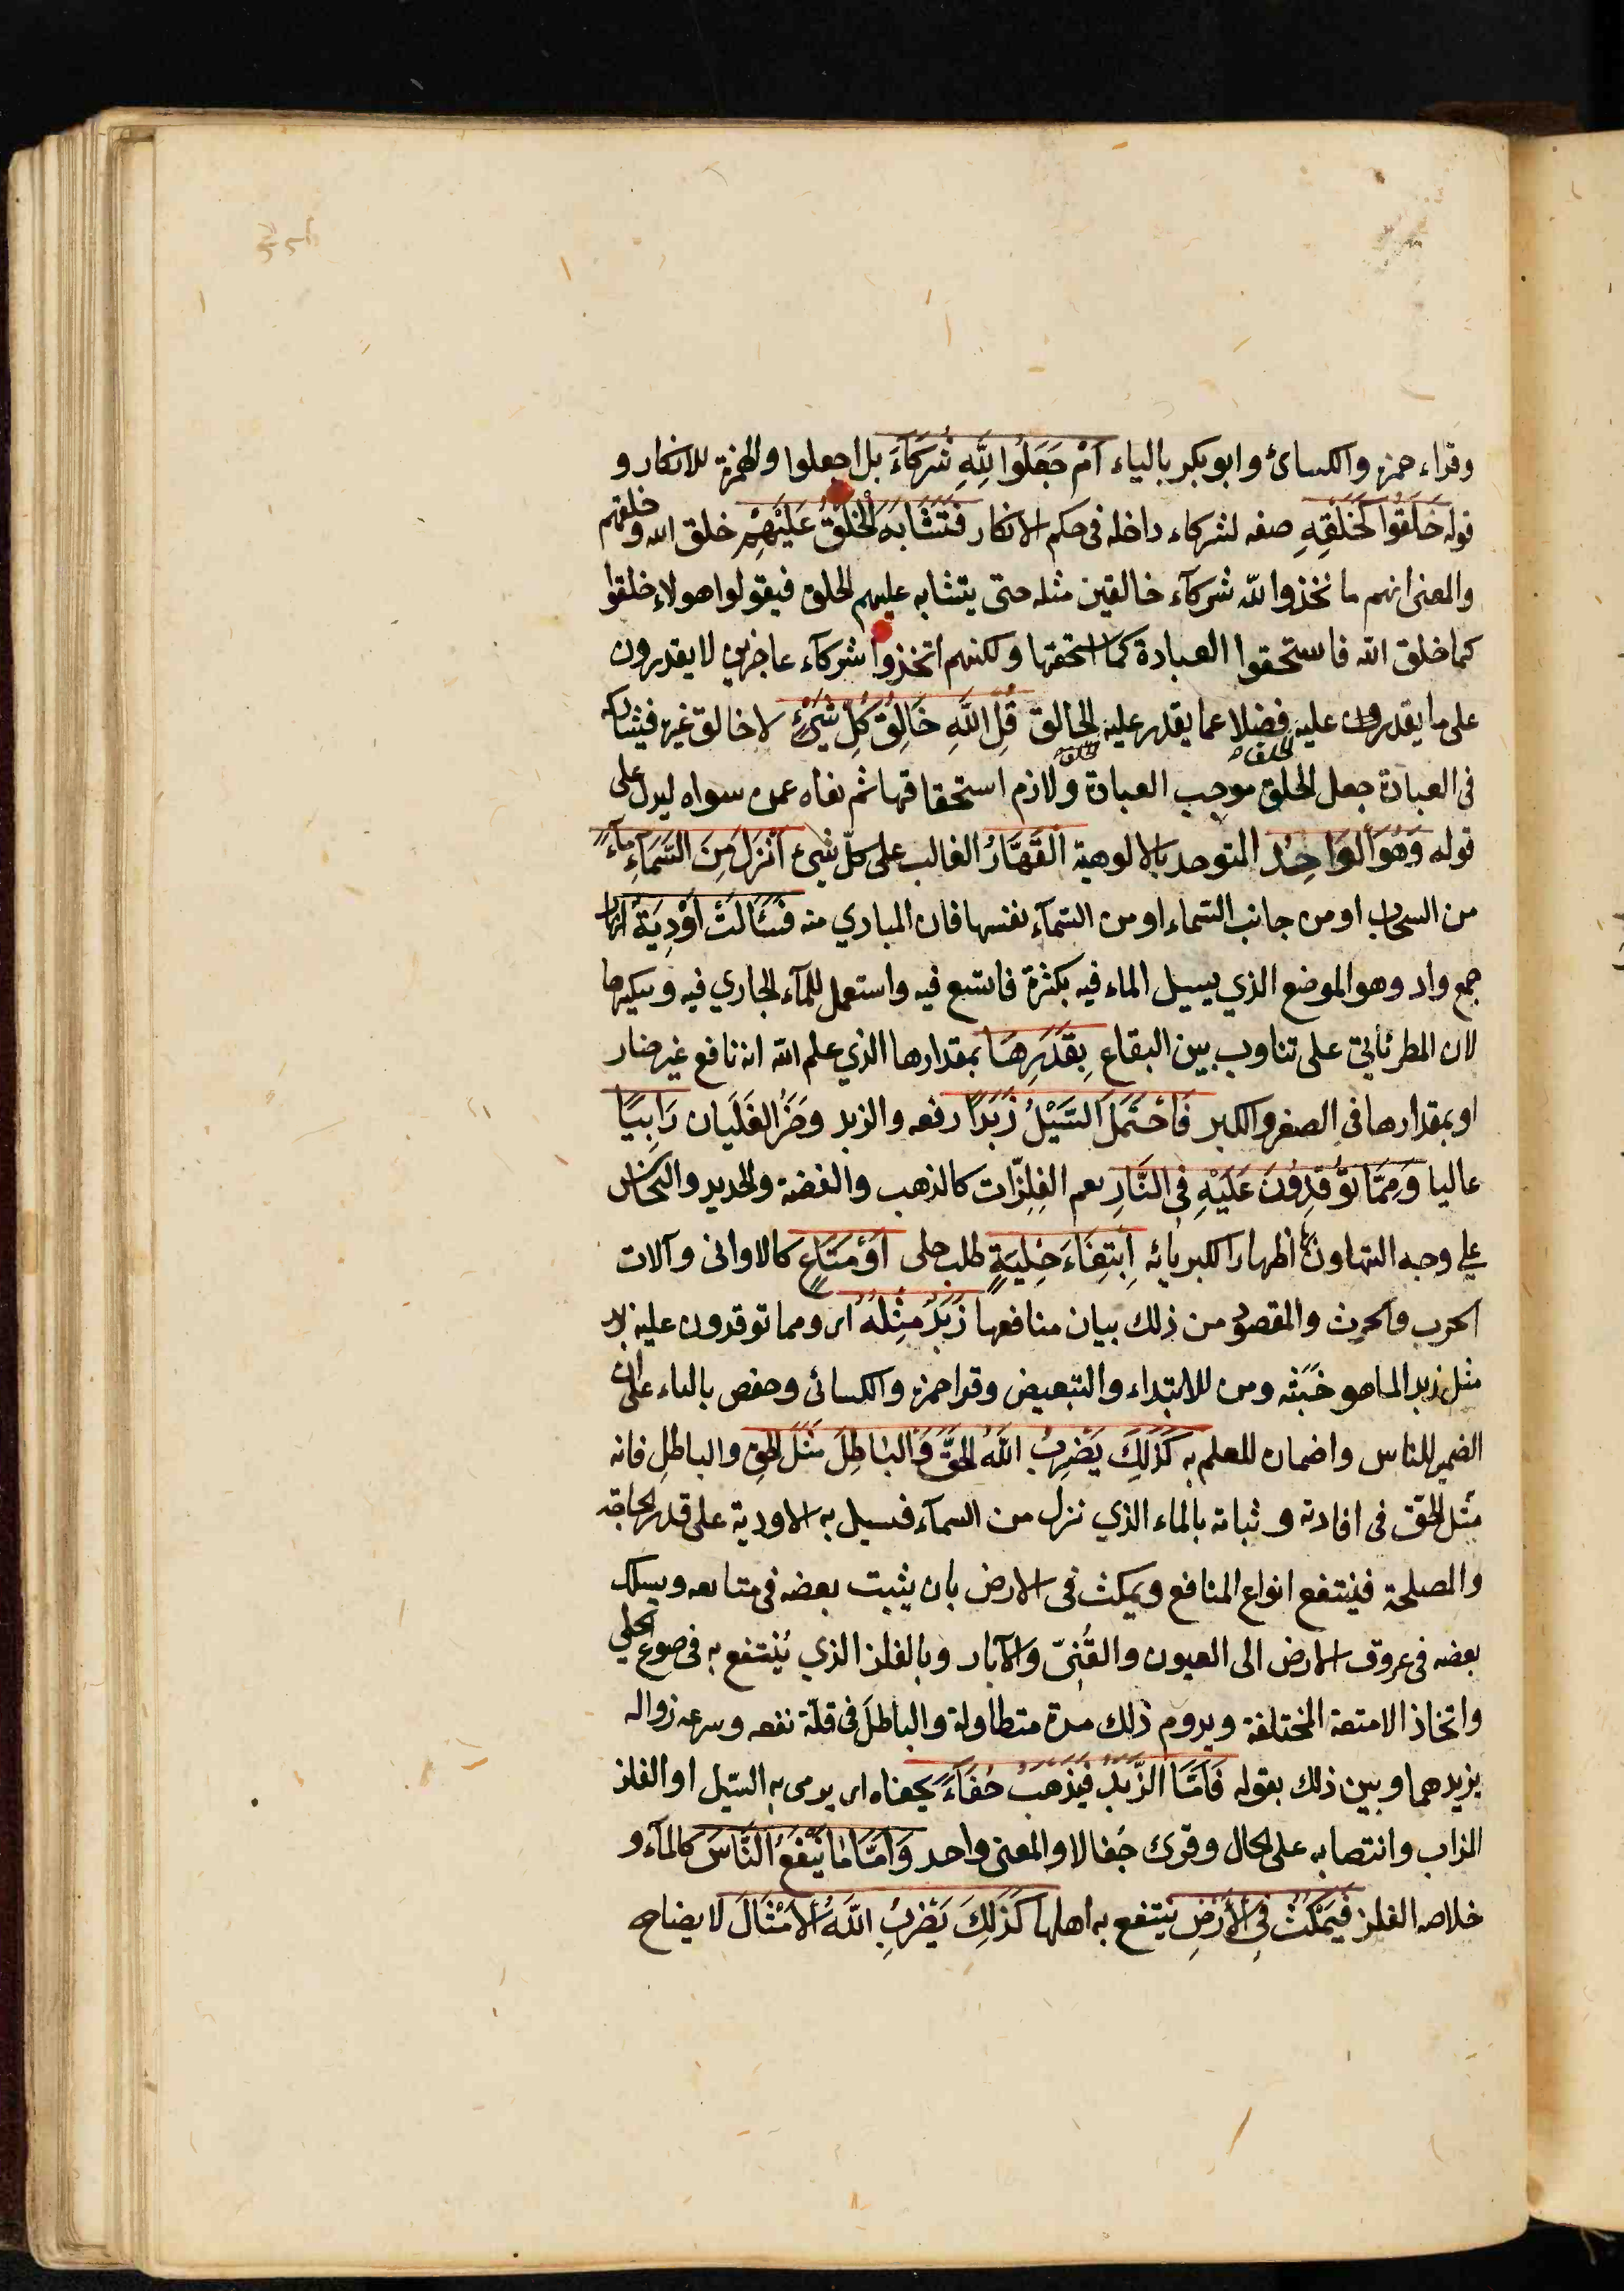 وقراء حمزه والكسائ وابو بكر بالياء اَمْ جَعَلُوا لِلّٰهِ شُرَكَآءَ بل اجعلوا والهمزة للانكار و
قوله خَلَقُوا كَخَلْقِهِ صفه لشركاء داخله فى حكم الانكار فَتَشَابَهَ الْخَلْقُ عَلَيْهِمْ خلق الله وخلقهم
والمعنى انهم ما تخذوا للّه شركآء خالقين مثله حتى يتشابه عليهم الخلق فيقولوا هولاء خلقوا
كما خلق الله فاستحقوا العبادة كما استحقها ولكنهم اتخذوا شركآء عاجزين لا يقدرون
على ما يقدرون عليه فضلا عما يقدر عليه الخالق قُلِ اللّٰهِ خَالِقُ كُلِّ شَئٍْ لا خالق غيره فيشاركه
فى العبادة جعل الخلق موجب العبادة ولازم استحقاقها ثم نفاه عمن سواه ليدل على
قوله وَهُوَ الْوَاحِدُ المتوحد بالالوهية الْقَهَّارُ الغالب على كلّ شئ اَنْزَلَ مِنَ السَّمَآءِ مَآءً
من السحاب او من جانب السّماء او من السّمآء نفسها فان المبادي منه فَسَالَتْ اَوْدِيَةٌ انهار
جمع واد وهو الموضع الذي يسيل الماء فيه بكثرة فاتسع فيه واستعمل للمآء الجاري فيه وتنكيرها
لان المطر يأتى على تناوب بين البقاع بِقَدَرِهَا بمقدارها الذي علم الله انه نافع غير ضار
او بمقدارها فى الصغر والكبر فَاحْتَمَلَ السَّيْلُ زَبَدًا رفعه والزبد وضَرُ الغَلَيان رَابِيًا
عاليا وَمِمَّا تُوقِدُونَ عَلَيْهِ فِى النَّارِ يعم الفِلِزّات كالذهب والفضة والحديد والنحاس
على وجه التهاون بها اظهارا لكبريائه اِبْتِغَاءَ حِلْيَةٍ طلب حلى اَوْ مَتَاعٍ كالاوانى وآلات
الحرب والحرث والمقصود من ذلك بيان منافعها زَبَدٌ مِثْلُهُ اى ومما توقدون عليه زبد
مثل زبد الما هو خَبَثه ومن للابتداء والتبعيض وقرا حمزه والكسائى وحفص بالياء على ان
الضمير للناس واضماره للعلم به كَذٰلِكَ يَضْرِبُ اللّٰهُ الْحَقَّ وَالْبَاطِلَ مَثَلَ الحق والباطل فانه
مَثل الحقّ فى افادته وثباته بالماء الذي نزل من السمآء فسيل به الاودية على قدر الحاجة
والمصلحة فينتفع انواع المنافع ويمكث فى الارض بان يثبت بعضه فى منابعه ويسلك
بعضه فى عروق الارض الى العيون والقُنىّ والآبار وبالفلز الذي يُنتفع به فى صوغ الحلي
واتخاذ الامتعة المختلفة ويدوم ذلك مدة متطاولة والباطلَ فى قلّة نفعه وسرعه زواله
بزبدهما وبين ذلك بقوله فَاَمَّا الزَّبَدُ فَيَذْهَبُ جُفَآءً يجفاه اى يرمى به السّيل او الفلز
المذاب وانتصابه على الحال وقرئ جُفالا والمعنى واحد وَاَمَّا مَا يَنْفَعُ النَّاسَ كالمآء و
خلاصه الفلز فَيَمْكُثُ فِى الْاَرْضِ ينتفع به اهلها كَذٰلِكَ يَضْرِبُ اللّٰهُ الْاَمْثَالَ لايضاح